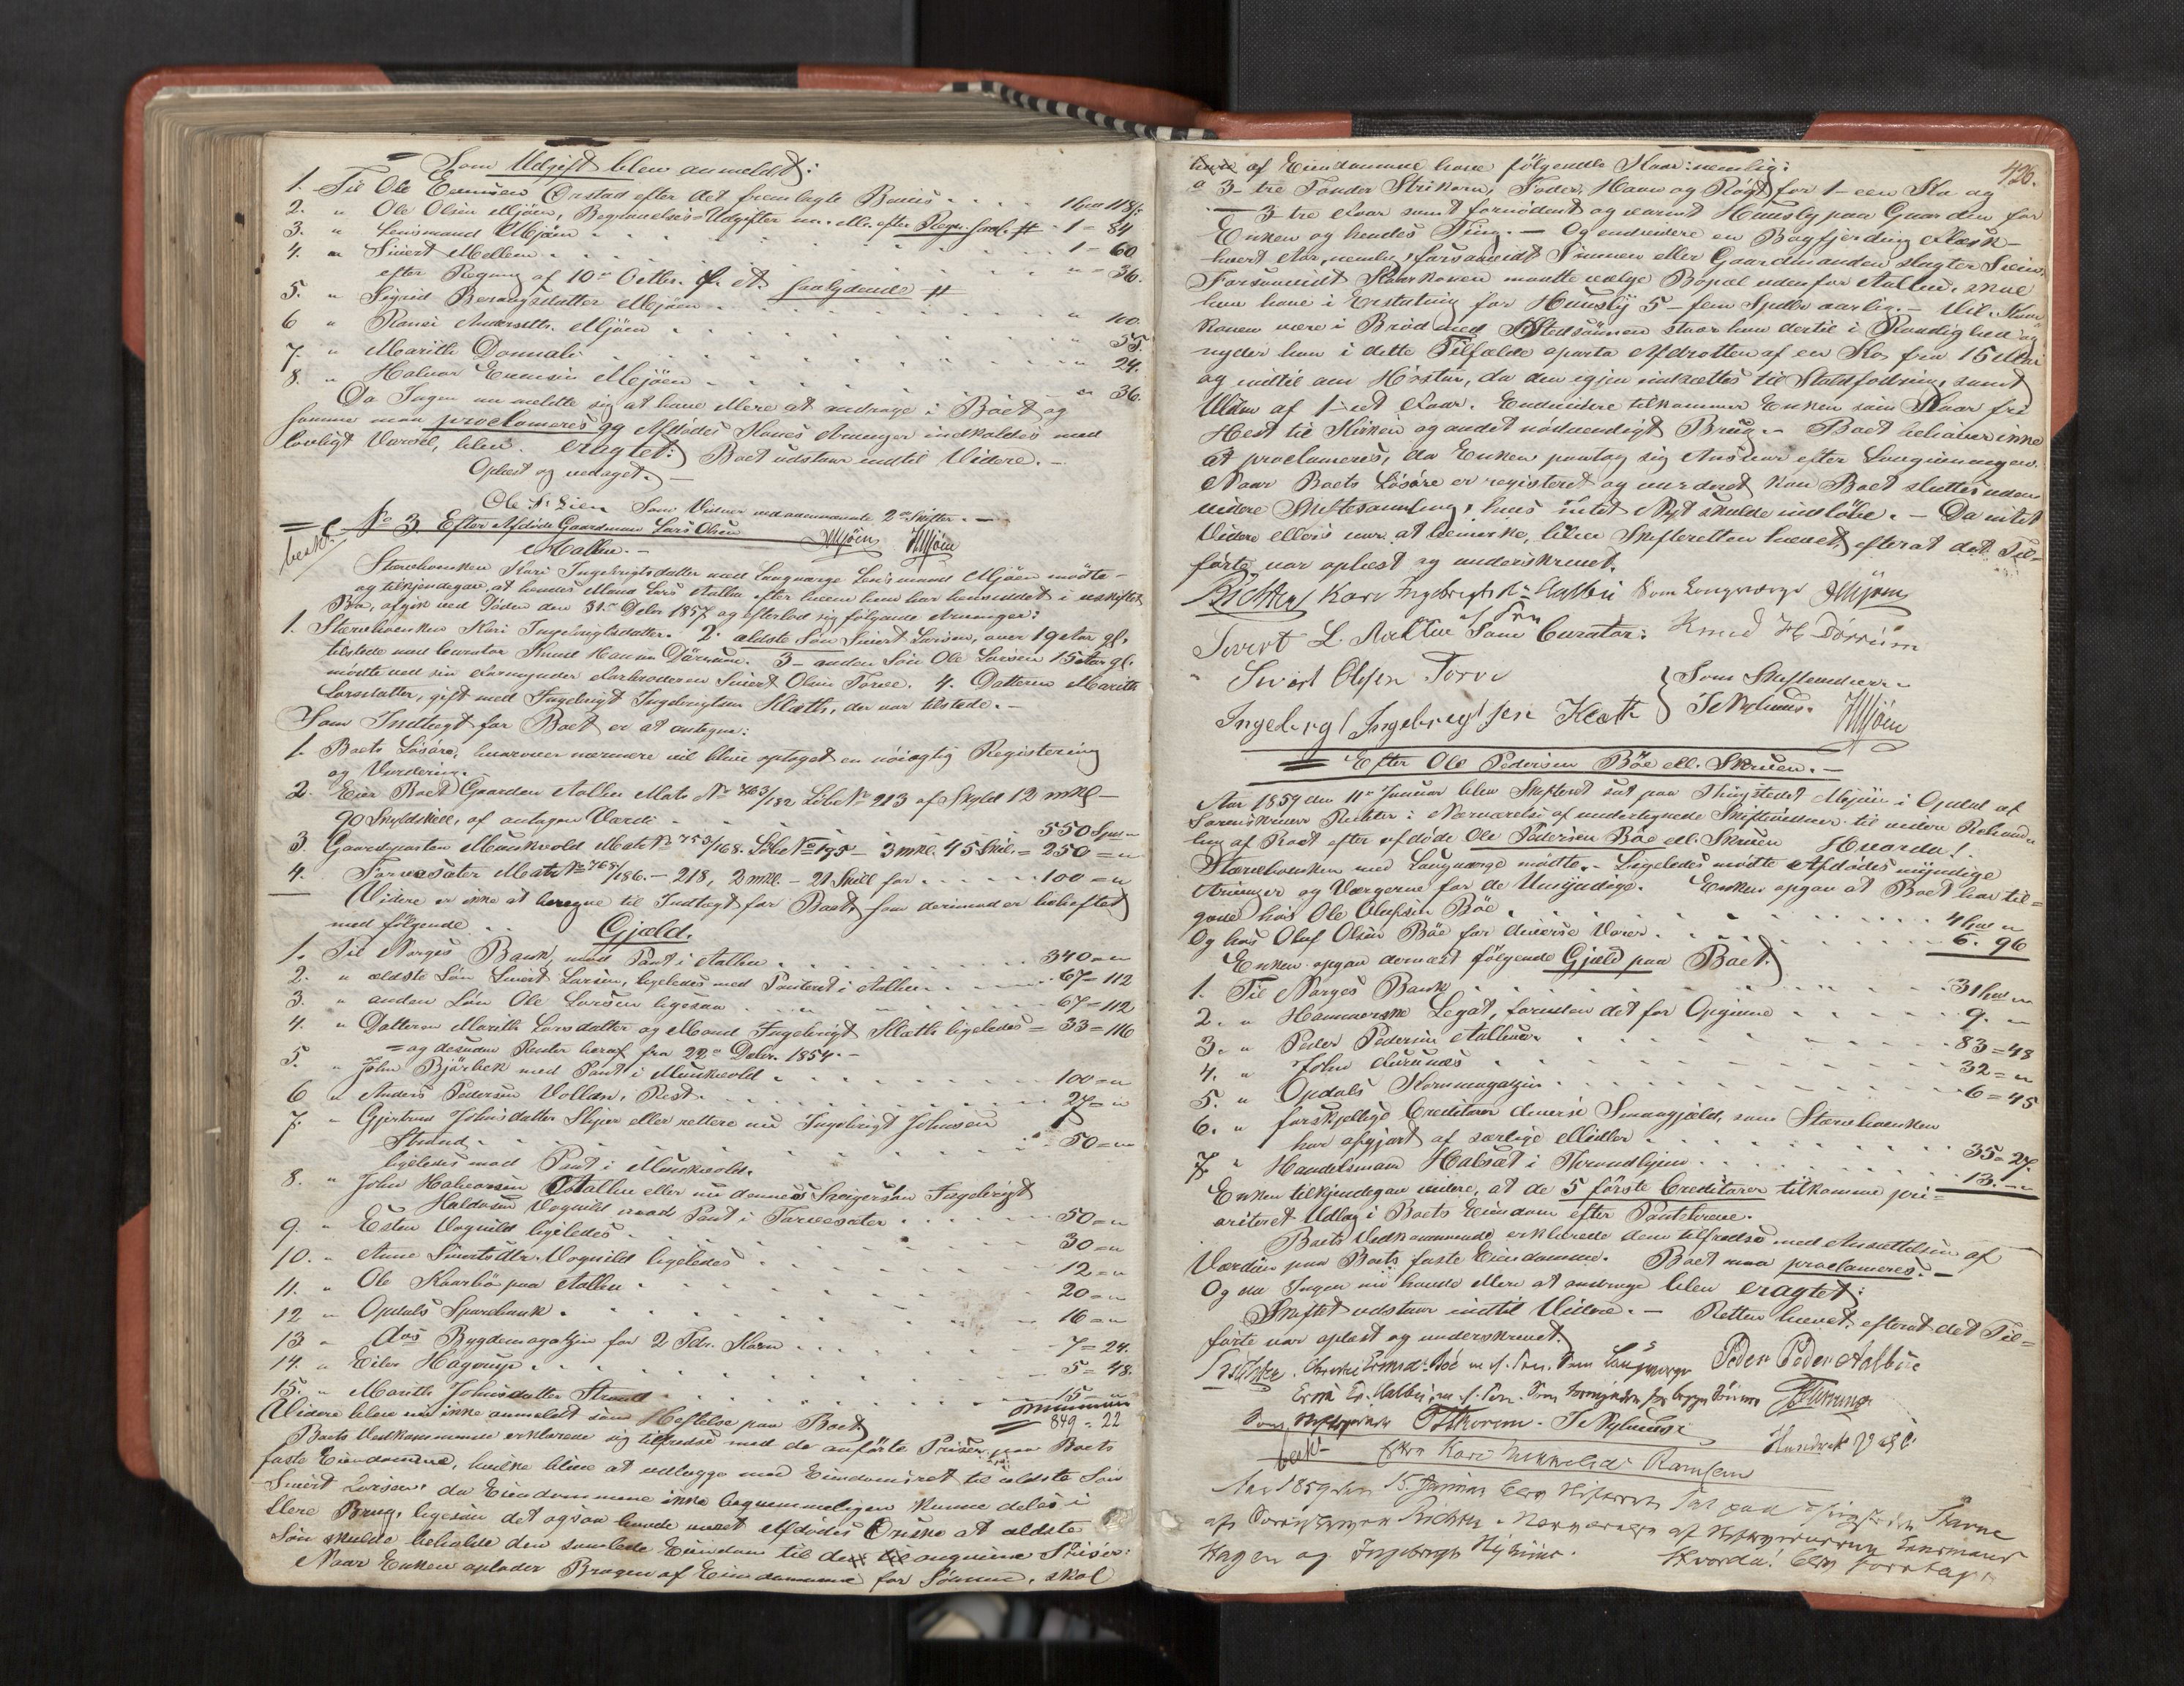 Som Udgift blev anmeldt:
1. Til Ole Ensen Orstad efter det fremlagte Beviis . . . . 118/:
2. " Ole Olsen Mjöen, Begravelses-Udgifter efter Regn. saal. # - 1 = 84
3. " Lensmand Mjöen . . . 1 = 60
4. " Sivert Mellem . . . " = 36.
efter Regning af 10de Octbr. f. A. saalydende #
5. " Sigrid Mjöen . . . " 100.
6 " Ransi Andersdtr. Mjöen . . . " 55.
7. " Marith Donnali . . . " 24.
8. " Halvor Mjöen . . . " 36.
Da Ingen nu meldte sig at have Mere at andrage i Böet og
samme maa proclameres og Afdödes Arvinger indkaldes med
lovligt Varsel, blev eragtet: Boet udstaar indtil Videre. -
Oplæst og vedtaget. -
Ole Lien Som Vidner ved 2de Skifter. -
Mjöen Mjöen
besk. No 3. Efter Afdöde Gaardmand Lars Olsen
Aalbu. -
Stervboenken Kari Ingebrigtsdatter med Laugværge Lensmand Mjöen mödte -
og tilkjendegav, at hendes Mand Lars Aalbu efter hvem hun har hensiddet i uskiftet
Bo, afgik ved Döden den 31te Debr 1857 og efterlod sig fölgende Arvinger:
1. Stervboenken Kari Ingebrigtsdatter. 2. ældste Sön Sivert Larsen, over 19 Aar gl.
tilstede med Curator Knud Dörrum. 3 - anden Sön Ole Larsen 15 Aar gl.
mödte ved sin Formynder Farbroderen Sivert Olsen Torve. 4. Datteren Marith
Larsdatter, gift med Ingebrigt Ingebrigtsen Kleth, der var tilstede. -
Som Indtægt for Boet er at antegne:
1. Boets Lösöre, hvorover nærmere vil blive optaget en nöiagtig Registering
og Vurdering.
2. Eier Boet Gaarden Aalbu Matr No 763/182 LöbeNo 213 af Skyld 12 mkl -
90 Skyldskill, af antagen Værdi . . . 550 Spd "
3. Gaardparten Munkvold Matr No 753/168. LöbeNo 195 - 3 mkl. 45 Skill. = 250 = "
4. Torvesæter Matr No 768/186. - 218, 2 mkl. - 21 Skill for . . . 100 = "
Videre er ikke at beregne til Indtægt for Boet, som derimod er behæftet
med fölgende Gjæld.
1. Til Norges Bank, med Pant i Aalbu . . . 340 = "
2. " ældste Sön Sivert Larsen, ligeledes med Panteret i Aalbu . . . 67 = 112
3. " anden Sön Ole Larsen ligesaa . . . 67 = 112
4. " Datteren Marith Larsdatter og Mand Ingebrigt Kleth ligeledes = 33 = 116
= og desuden Renter heraf fra 22de Debr. 1854. -
5. " John Bjärbek med Pant i Munkvold . . . 100 = "
6 " Anders Pedersen Vollan, Rest . . . 27 = "
7. " Gjertrud Johnsdatter Skjer eller rettere nu Ingebrigt Johnsen
Strand . . . 50 = "
ligeledes med Pant i Munkvold.
8. " John Halvorsen Aalbu eller nu dennes Svigersön Ingebrigt
Haldosen Vognild med Pant i Torvesæter . . . 50 = "
9. " Esten Vognild ligeledes . . . 30 = "
10. " Anne Sivertsdtr. Vognild ligeledes . . . 12 = "
11. " Ole Kaarbö paa Aalbu . . . 20 = "
12 " Opdals Sparebank . . . 16 = "
13 " dos Bygdemagatzin for 2 Tdr. Korn . . . 7 = 24.
14. " Eiler Hagerup . . . 5 = 48.
15. " Marith Johnsdatter Strand . . . 15 = "
= 849 = 22
Videre blev nu ikke anmeldt som Heftelse paa Boet.
Boets Vedkommende erklærede sig tilfredse med de anförte Priser paa Boets
faste Eiendomme, hvilke blive at udlægge med Eiendomsret til ældste Sön
Sivert Larsen, da Eiendommene ikke beqvemmeligen kunne deles i
flere Brug, ligesom det ogsaa havde været Afdödes Önske at ældste
Sön skulde beholde den samlede Eiendom til de angivne Priser.
Naar Enken oplader Brugen af Eiendommene for Sönnen, skal
426.
hun af Eiendommene have fölgende Kaar: nemlig:
a 3 - tre Tönder Strikorn, Foder, Havn og Rögt for 1 - een Ko og
3 tre Faar samt fornödent og varmt Huusly paa Gaarden for
Enken og hendes Ting. - Og endvidere en Bogfjerding Flæsk -
hvert Aar, nemlig forsaavidt Sönnen eller Gaardmanden slagter Sviin.
Forsaavidt Kaarkonen maatte vælge Bopæl udenfor Aalbu, skal
hun have i Erstatning for Huusly 5 - fem Spdlr aarlig. - Vil Kaar
konen være i Bröd med Stedsönnen staar hun dertil i Raadighed og
nyder hun i dette Tilfælde aparte Afdrotten af en Ko, fra 15 Mai
og indtil om Hösten, da den igjen indsættes til Staldfodring, samt
Ulden af 1 - et Faar. Endvidere tilkommer Enken som Kaar fri
Hest til Kirken og andet nödvendigt Brug. - Boet behöver ikke
at proclameres, da Enken paatog sig Ansvar efter Lovgivningen.
Naar Boets Lösöre er registeret og vurderet kan Boet sluttes uden
videre Skiftesamling, hvis intet Nyt skulde indlöbe. - Da intet
Videre ellers var at bemerke, blev Skifteretten hævet, efterat det Til=
förte var oplæst og underskrevet.
Richter Kari Ingebrigts Dr Aalbu Som Laugværge Mjöen
m f Pen
Sivert L. Aalbu Som Curator: Knud H Dörrum
Sivert Olsen Torve Som Skiftevidner.
Ingebrigt Ingebrigtsen Kleth Mjöen
= Efter Ole Pedersen Böe ell. Skruen. -
Aar 1859 den 11te Januar blev Skifteret sat paa Thingstedet Mjöen i Opdal af
Sorenskriver Richter i Nærværelse af undertegnede Skiftevidner til videre Behand=
ling af Boet efter afdöde Ole Pedersen Böe ell. Skruen Hvorda!
Stervboenken med Laugværge mödte. - Ligeledes mödte Afdödes myndige
Arvinger og Værgerne for de Umyndige. Enken opgav at Boet har til=
gode hos Ole Olufsen Böe . . . 4 "
Og hos Oluf Olsen Böe for diverse Varer . . . 6. 96
Enken opgav dernæst fölgende Gjæld paa Boet.
1. Til Norges Bank . . . 31 "
2. " Hammerske Legat, foruden det for Opgivne . . . 9. "
3. " Peder Pedersen Aalbu . . . 83 = 48
4. " John . . . 32 = "
5. " Opdals Kornmagatzin . . . 6 = 45
6. " forskjellige Creditorer diverse Smaagjæld, som Stervboenken
har afgjort af særlige Midler . . . 35 = 27.
7. " Handelsmand Halset i Throndhjem . . . 13. "
Enken tilkjendegav videre, at de 5 förste Creditorer tilkomme pri=
oriteret Udlæg i Boets Eiendom efter Pantebreve.
Boets Vedkommende erklærede dem tilfredse med Ansættelsen af
Værdien paa Boets faste Eiendomme. Boet maa proclameres. -
Og da Ingen nu havde Mere at andrage blev eragtet:
Skiftet udstaar indtil Videre. - Retten hævet, efterat det Til=
förte var oplæst og underskrevet.
Richter. Böe m. f. Pen. Som Laugværge Peder Peder Aalbu
Som
besk.
Efter Kari Ramsem
Aar 1859 den 15. Januar blev Skifteret sat paa
af Sorenskriver Richter i Nærværelse af Lensmand
Hagen og Ingebrigt Hvorda! blev foretaget